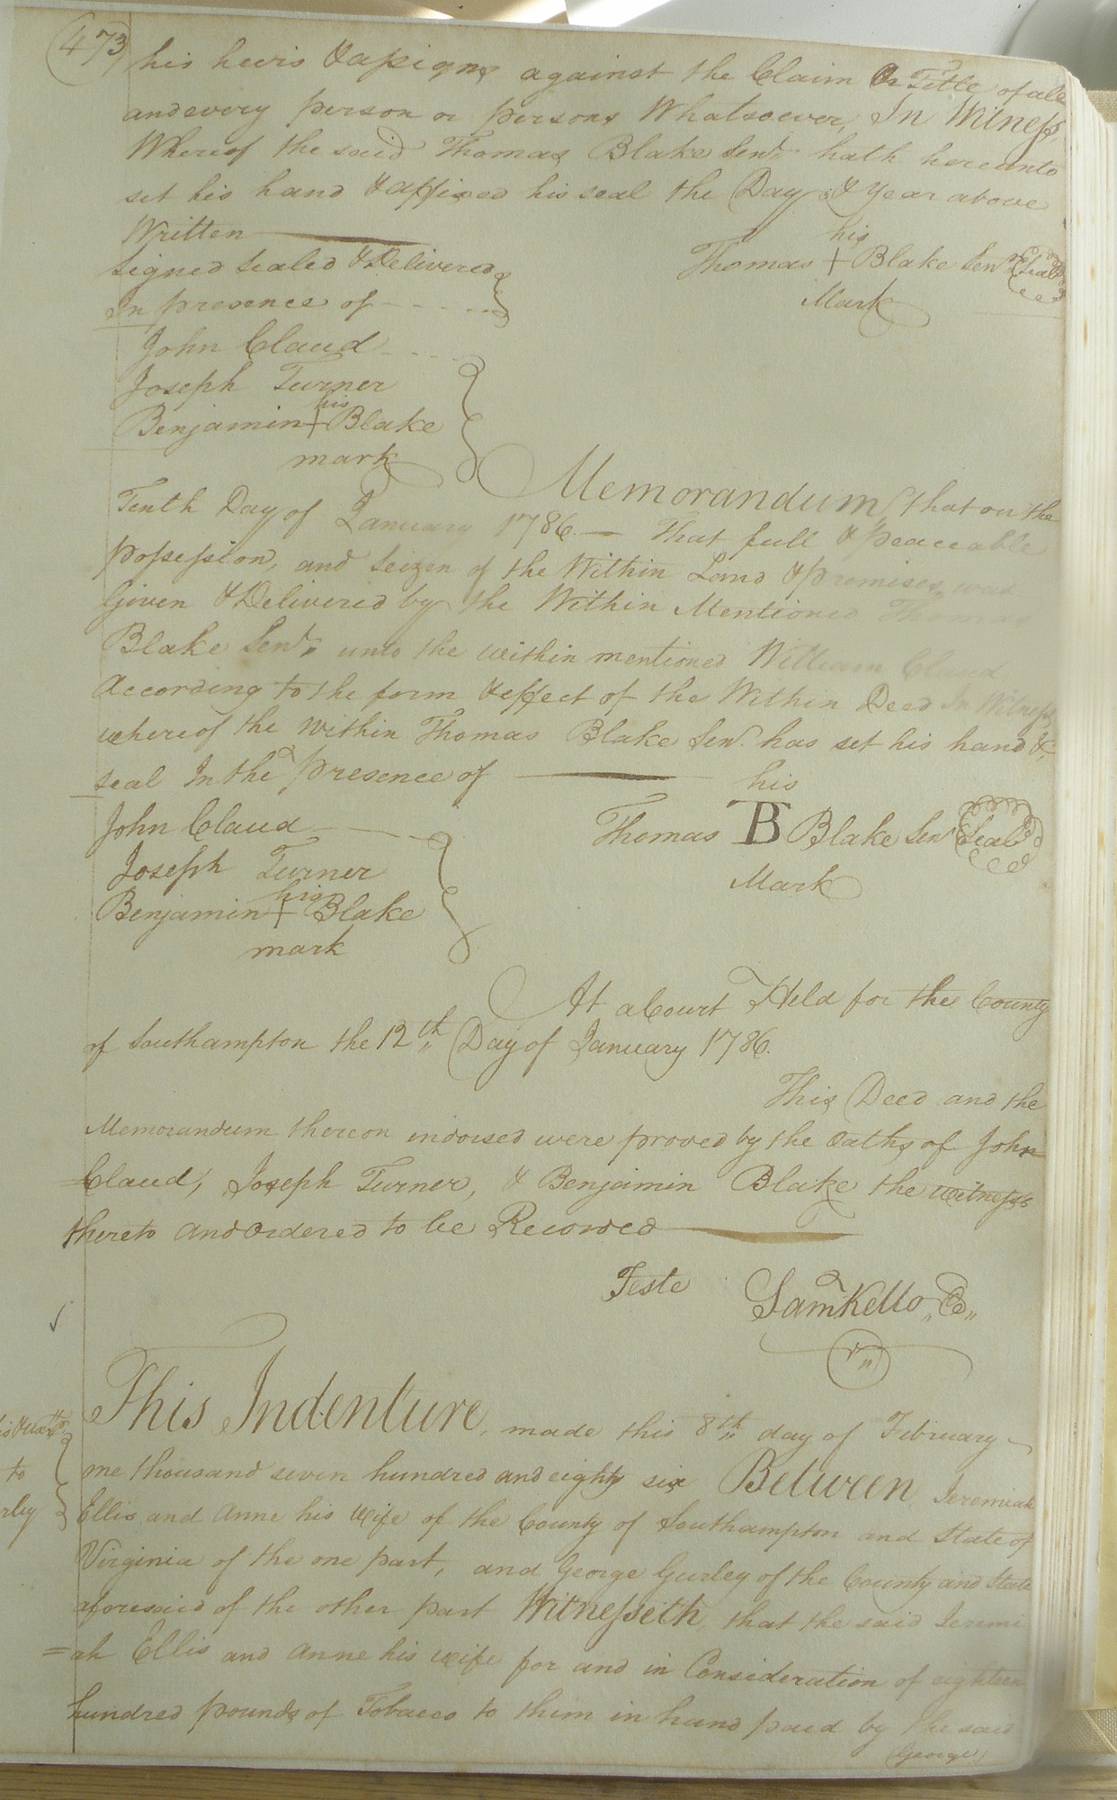 473
his heirs & assigns against the Claim Or Title of all
and every person or persons Whatsoever, In Witness,
Whereof the said Thomas Blake Senr. hath hereunto
set his hand & affixed his seal the Day & Year above
Written
his
Signed Sealed & Delivered
Thomas + Blake Senr. Seal
In presence of
Mark
John Claud
Joseph Turner
his
Benjamin + Blake
mark
Memorandum that on the
Tenth Day of January 1786. — That full & peaceable
possession, and Seizen of the Within Land & promises, was
Given & Delivered by the Within Mentioned Thomas
Blake Senr. unto the within mentioned William Claud
According to the form & effect of the Within Deed In Witness
whereof the within Thomas Blake Senr. has set his hand &
seal In the presence of
his
John Claud
Thomas B Blake Senr Seal
Joseph Turner
Mark
his
Benjamin + Blake
mark
At a Court Held for the County
of Southampton the 12th Day of January 1786.
This Deed and the
Memorandum thereon indorsed were proved by the Oaths of John
Claud, Joseph Turner, & Benjamin Blake the witness
thereto and Ordered to be Recorded
Teste Saml Kello, Co,,
This Indenture, made this 8th day of February
one thousand seven hundred and eighty six Between Jeremiah
to
Ellis and Anne his Wife of the County of Southampton and State of
Virginia of the one part, and George Gurley of the County and State
aforesaid of the other part Witnesseth, that the said Jeremi
=ah Ellis and Anne his wife for and in Consideration of eighteen
hundred pounds of Tobacco to them in hand paid by the said
George